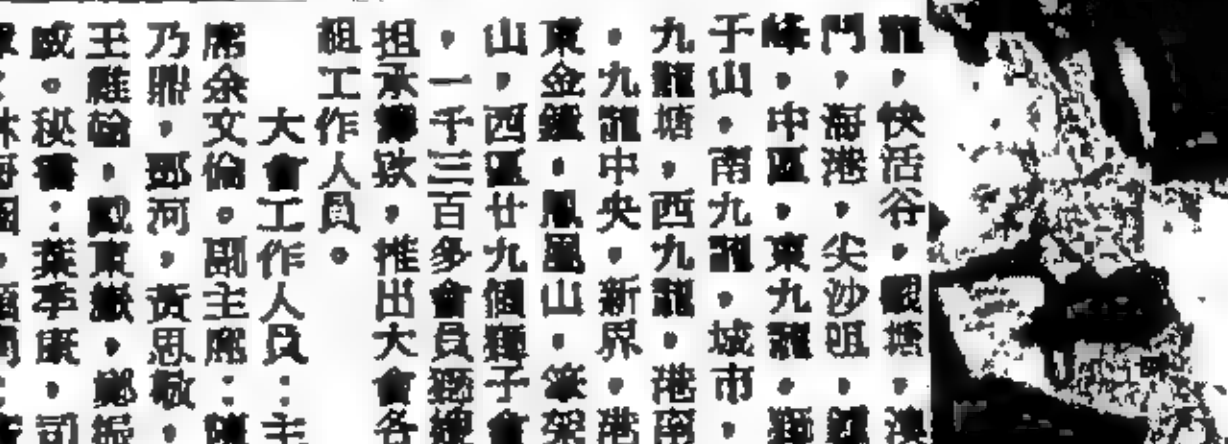 龍，快活谷，觀塘，澳
門，海港，尖沙咀，獅
峰，中區，東九龍，獅
子山，南九龍，城市，
九龍塘，西九龍，港南
，九龍中央，新界，港
東金鐘，鳳凰山，筆架
山，西區廿九個獅子會
，一千三百多會員
担承籌款，推出大會各
組工作人員。
大會工作人員：主
席余文倫。副主席：陳
乃鼎，鄧河，黃思敬，
王維綸，戴東嶽，鄭振
威。秘書：葉季康，司